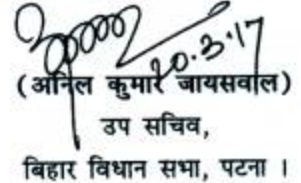 20.3.17
(अनिल कुमार जायसवाल)
उप सचिव,
बिहार विधान सभा, पटना ।